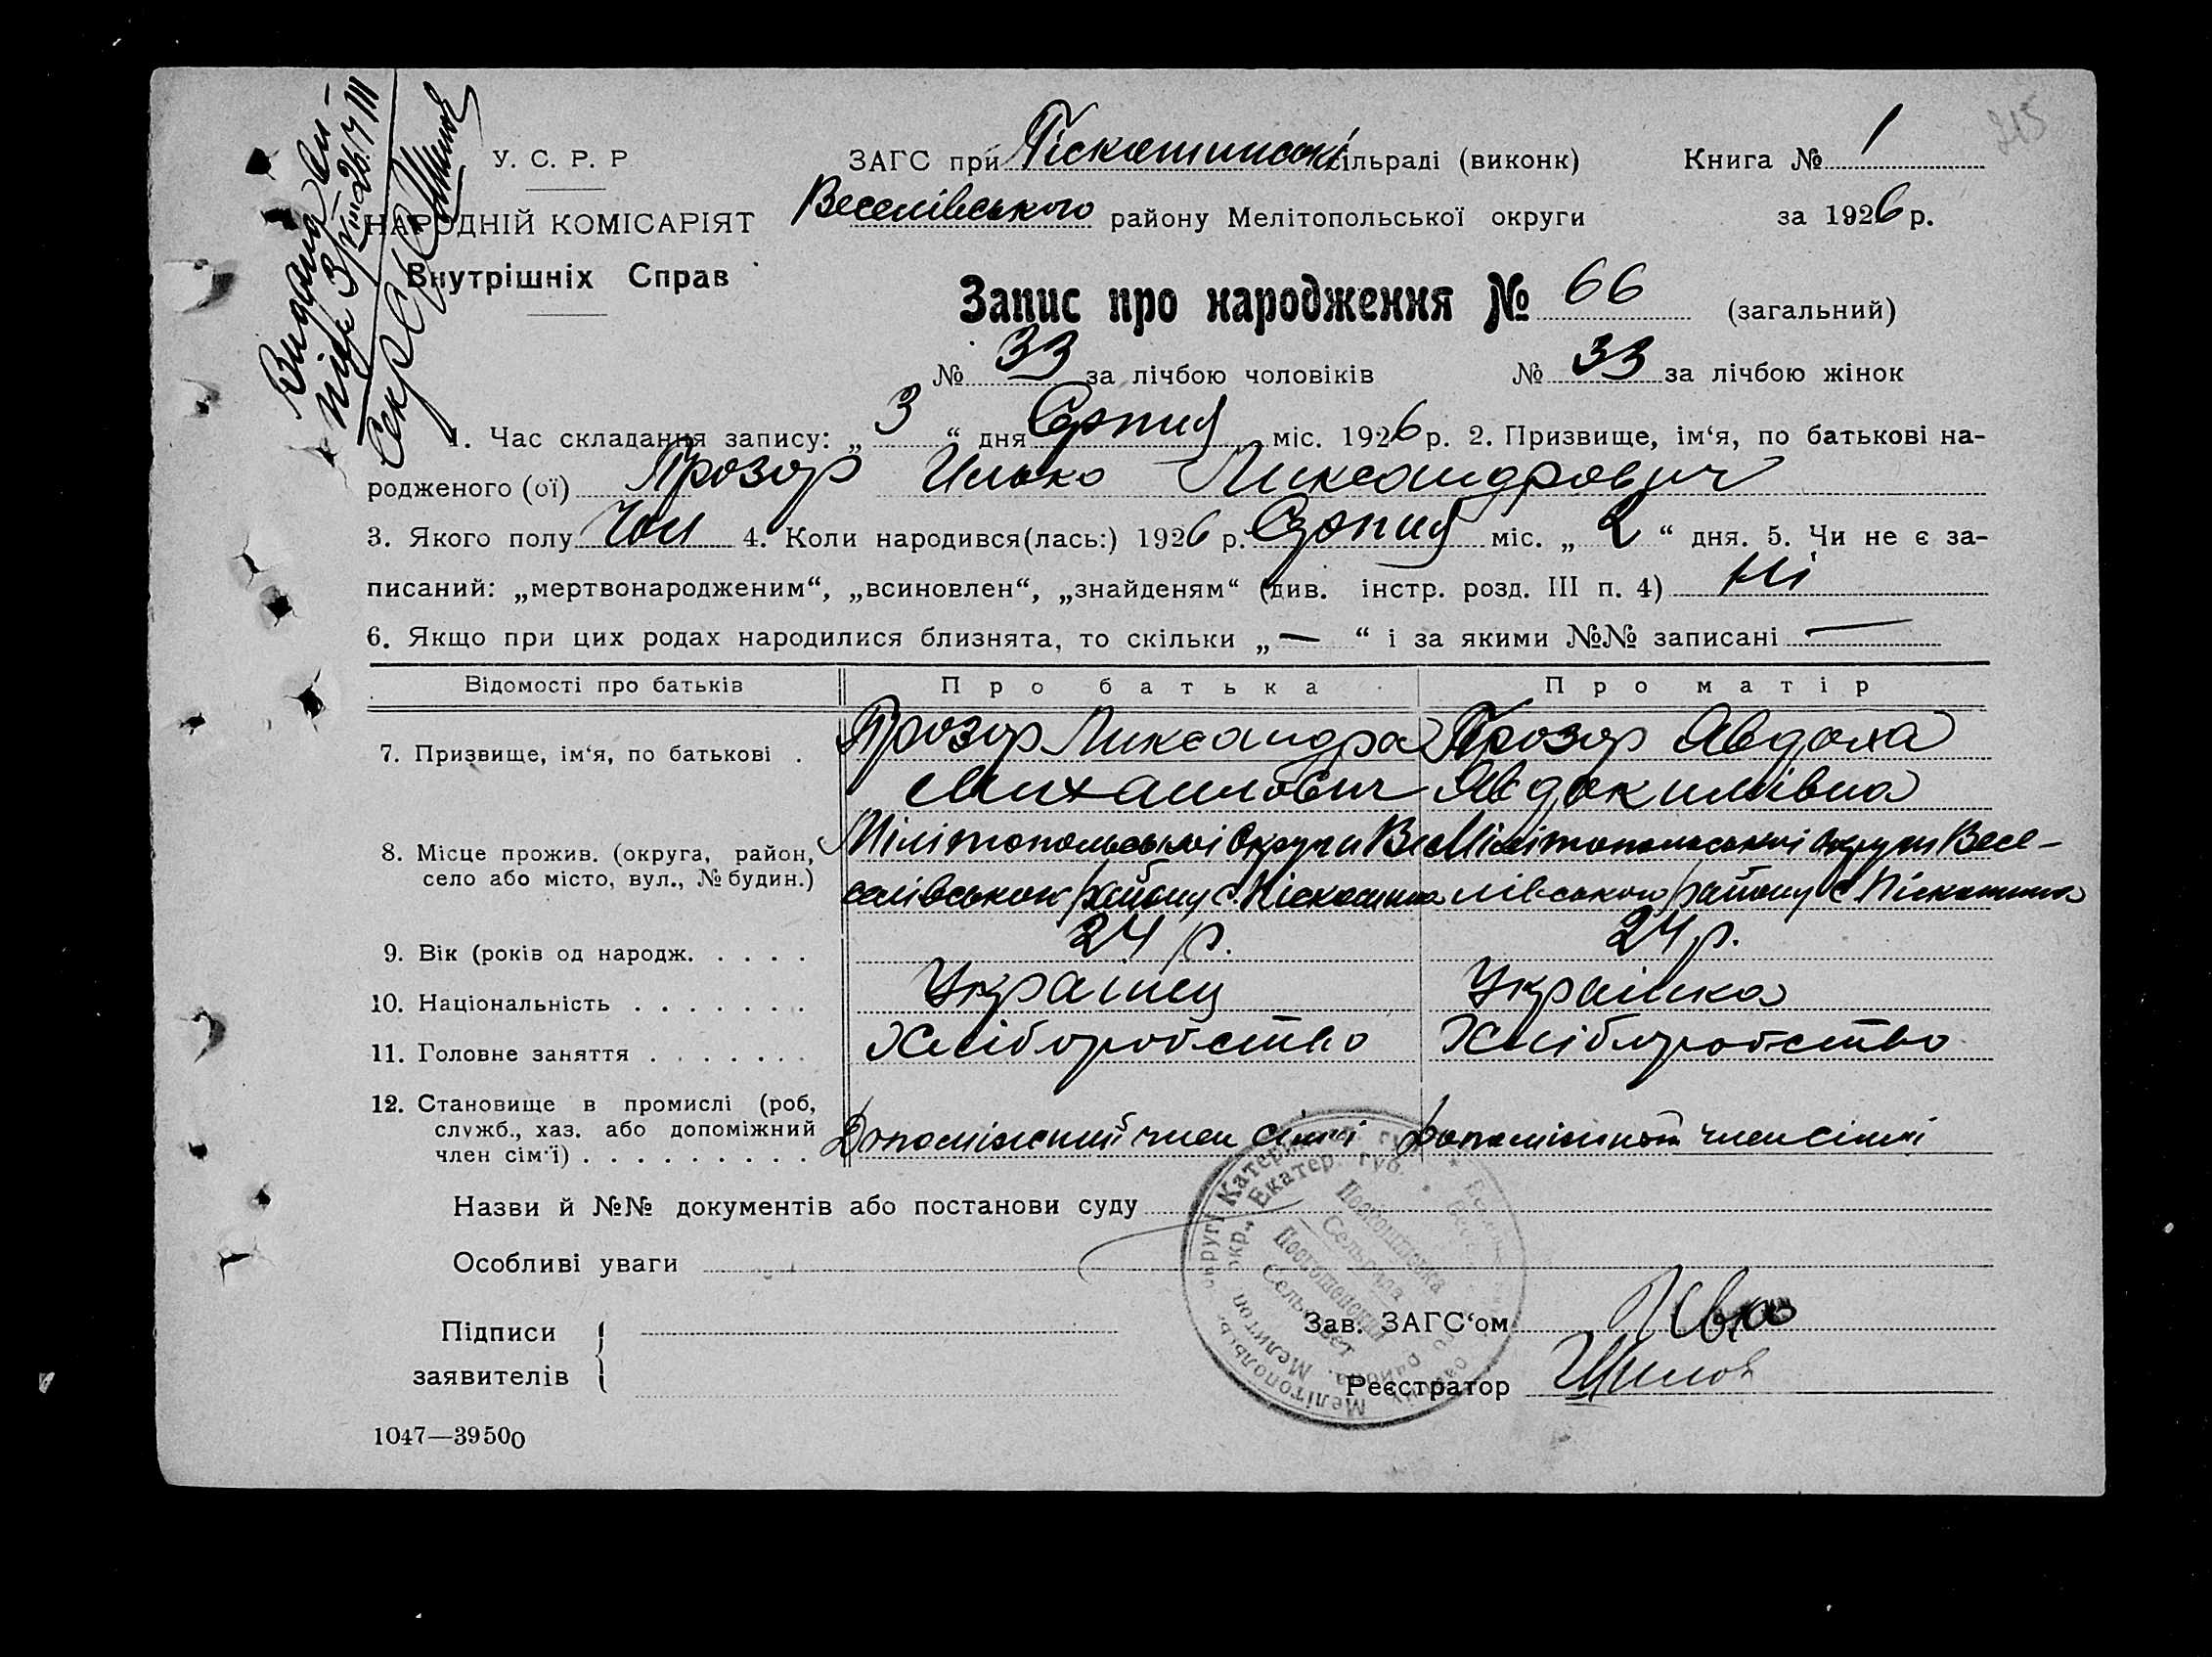 215
У. С. Р. Р
ЗАГС при Піскашинські сільраді (виконк) Книга № 1
НАРОДНІЙ КОМІСАРІЯТ
Веселівського району Мелітопольської округи за 1926 р.
Внутрішніх Справ
Запис про народження № 66 (загальний)
№ 33 за лічбою чоловіків № 33 за лічбою жінок
1. Час складання запису: „ 3 “ дня Серпня міс. 1926 р. 2. Призвище, ім‘я, по батькові на-
родженого (ої) Прозор Илько Ликсандрович
3. Якого полу Чол 4. Коли народився(лась:) 1926 р. Серпня міс. „ 2 “ дня. 5. Чи не є за-
писаний: „мертвонародженим“, „всиновлен“, „знайденям“ (див. інстр. розд. III п. 4) Ні
6. Якщо при цих родах народилися близнята, то скільки „ — “ і за якими №№ записані —
Відомості про батьків Про батька Про матір
7. Призвище, ім‘я, по батькові . Прозор Ликсандра Прозор Явдоха
Михаилович Явдокимівна
8. Місце прожив. (округа, район, Мілітопольської Округи Ве Мілітопольської округи Весе-
село або місто, вул., № будин.) селівського району с. Піскошино лівського району с Піскошино
9. Вік (років од народж. . . . . 24 р. 24 р.
10. Національність . . . . . . . Украінец Украінка
11. Головне заняття . . . . . . . Хліборобство Хліборобство
12. Становище в промислі (роб,
служб., хаз. або допоміжний Допоміжний член сімї допоміжной член сімї
член сім‘ї) . . . . . . . . .
Назви й №№ документів або постанови суду
Особливі уваги
Підписи
заявителів
Зав. ЗАГС‘ом
Реєстратор
1047—39500